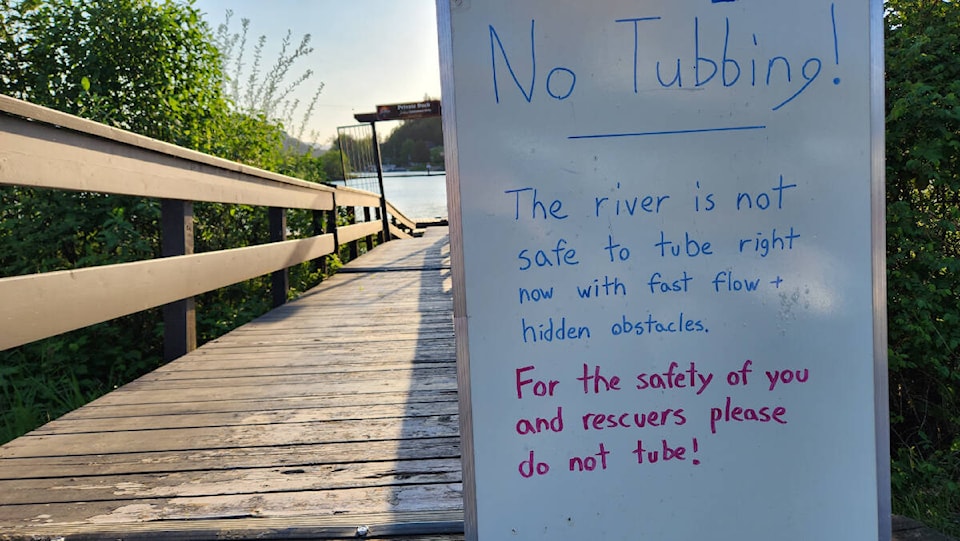 Private Dock
No Tubbing!
The river is not
safe to tube right
now with fast flow +
hidden obstacles.
For the safety of you
and rescuers please
do not tube!